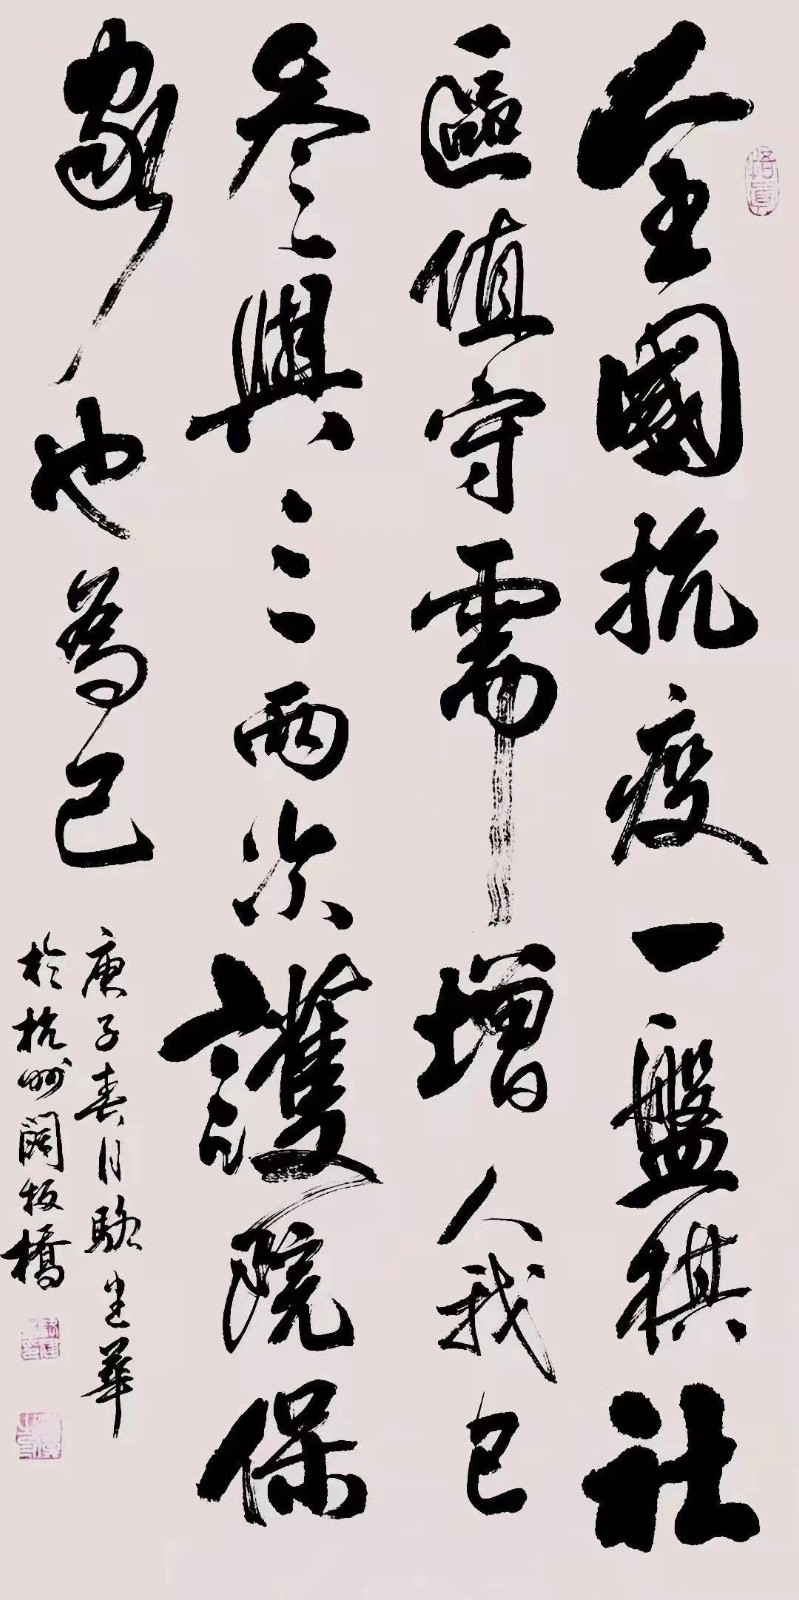 全國抗疫一盤棋社
區值守需增人我已
參與三兩次護院保
家也為己
庚子春月駱建華
於杭州闊板橋